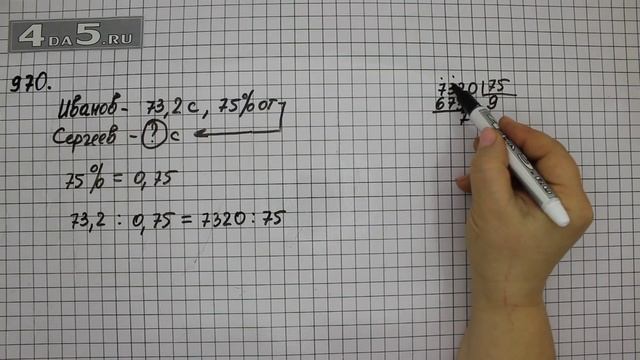 4DA5.RU
970.
Иванов - 73,2 с, 75% от
Сергеев - ? с
75% = 0,75
73,2 : 0,75 = 7320 : 75
7320 75
9